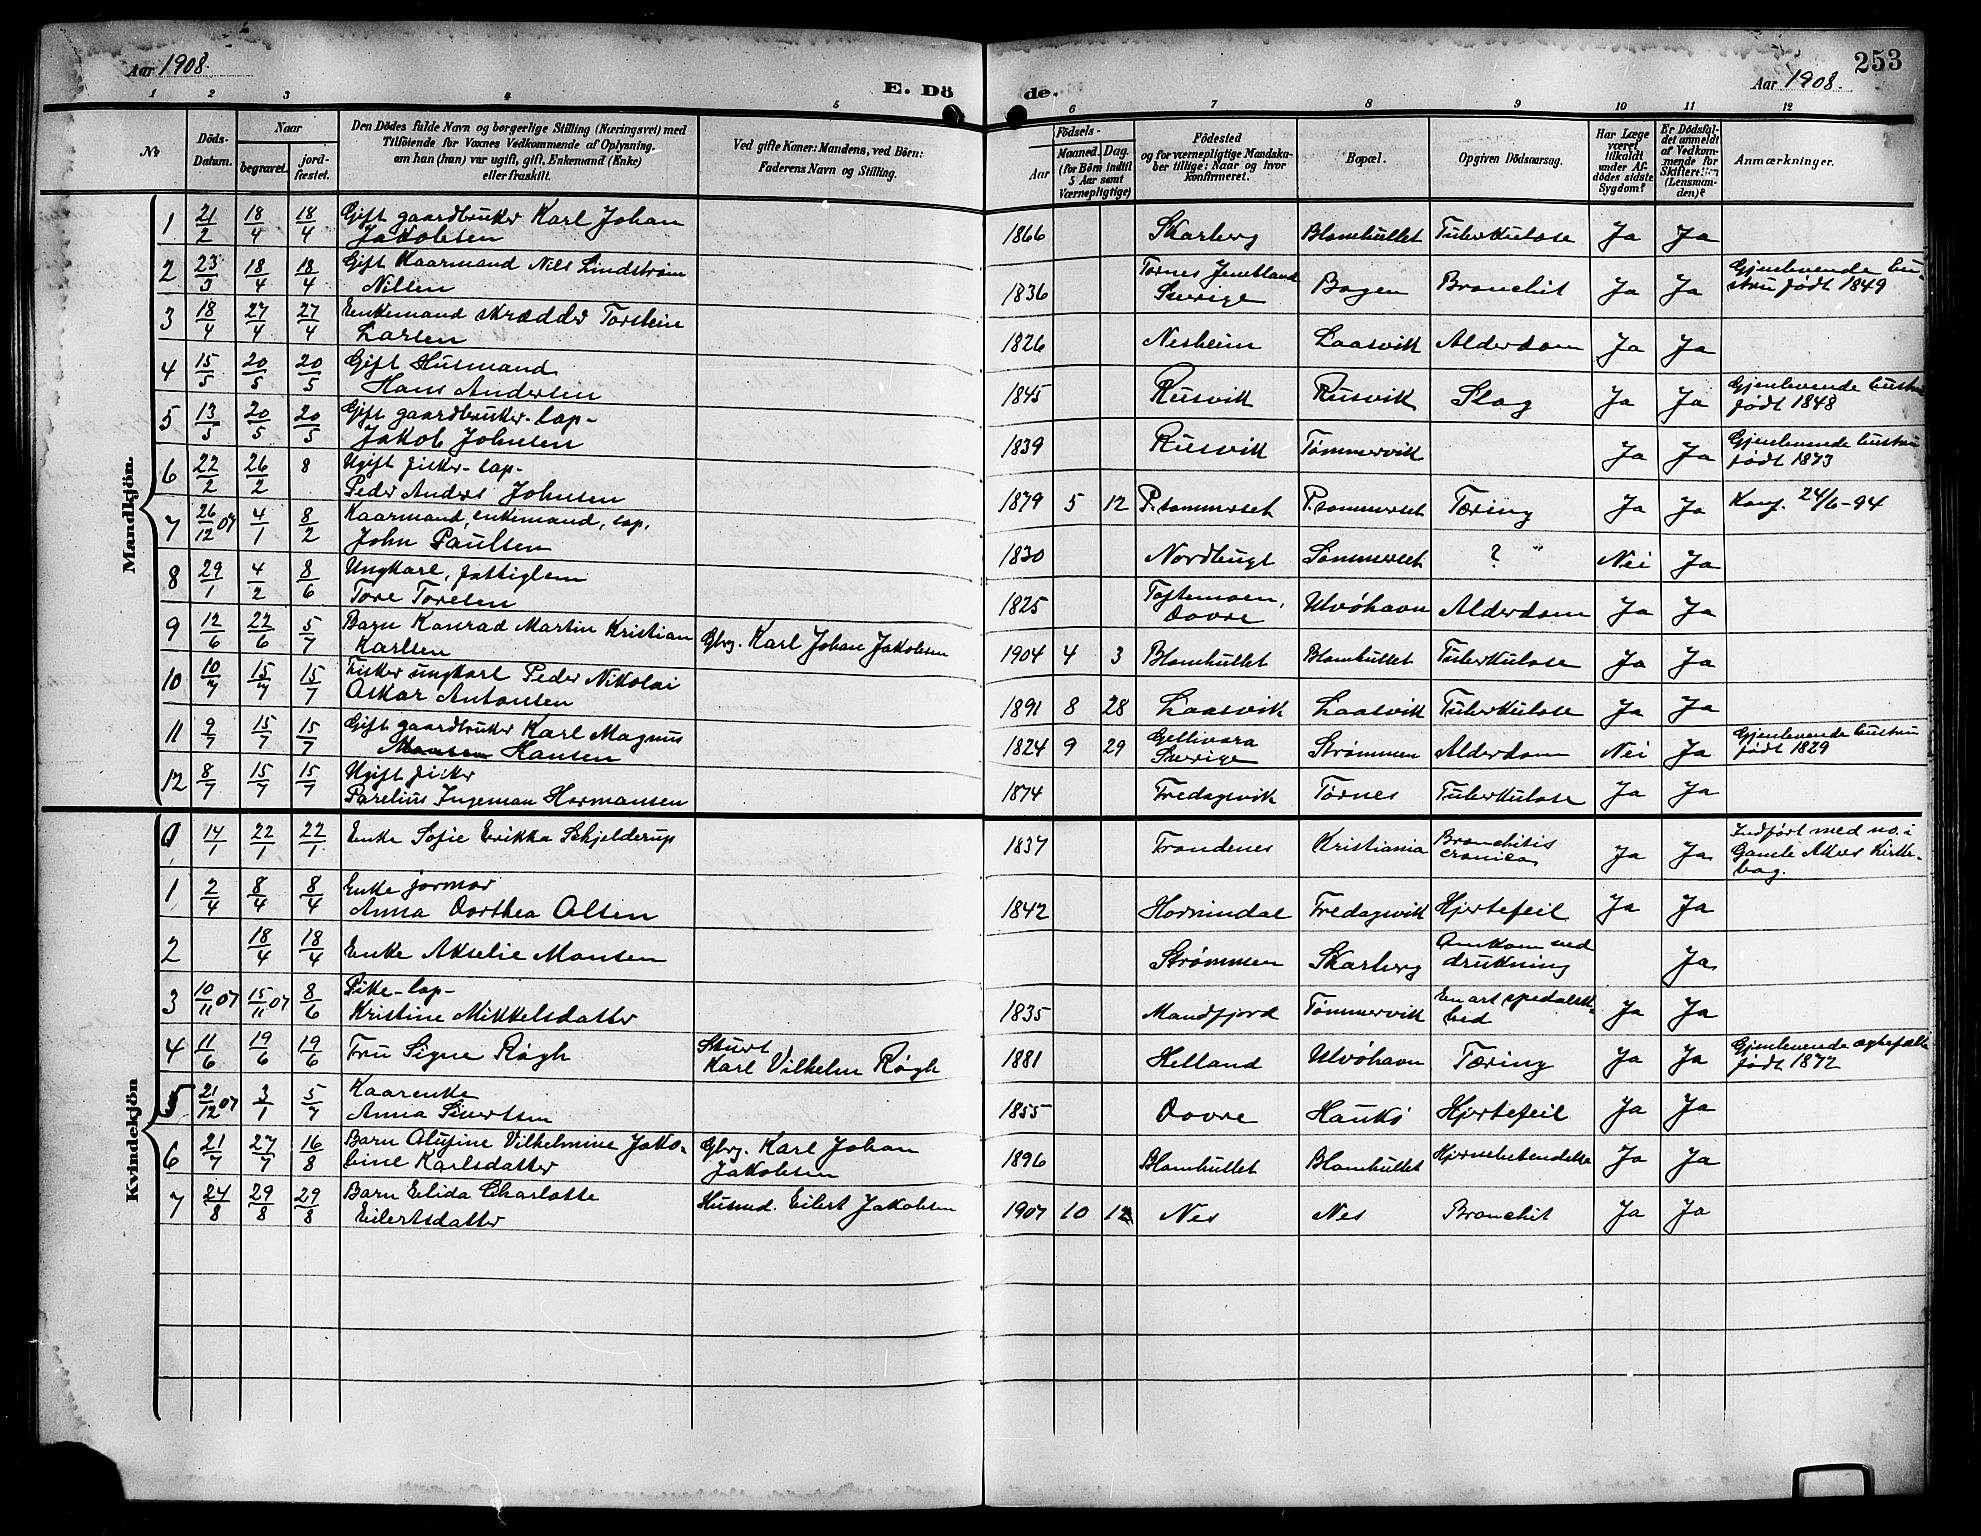 Aar 1908.
E. Döde.
Aar 1908.
253
1 2 3 4 5 6 7 8 9 10 11 12
No
Döds-Datum.
Naar
begravet.
jordfæstet.
Den Dödes fulde Navn og borgerlige Stilling (Næringsvei) med
Tilföiende for Voxnes Vedkommende af Oplysning,
om han (hun) var ugift, gift, Enkemand (Enke)
eller fraskilt.
Ved gifte Koner: Mandens, ved Börn:
Faderens Navn og Stilling.
Födsels-
Aar
Maaned. Dag.
(for Börn indtil
5 Aar samt
Værnepligtige)
Födested
og for værnepligtige Mandska-
ber tillige: Naar og hvor
konfirmeret.
Bopæl.
Opgiven Dödsaarsag.
Har Læge
været
tilkaldt
under Af-
dödes sidste
Sygdom?
Er Dödsfal-
det anmeldt
af Vedkom-
mende for
Skifteretten
(Lensman-
den)?
Anmærkninger.
Mandkjön.
1 21/2 18/4 18/4 Gift gaardbruker Karl Johan
Jakobsen 1866 Skarberg Blomhullet Tuberkulose Ja Ja
2 23/3 18/4 18/4 Gift Kaarmand Nils Lindstrøm
Nilsen 1836 Tornes Jemtland
Sverige Bogen Bronchit Ja Ja Gjenlevende hu-
stru født 1849
3 18/4 27/4 27/4 Enkemand skrædder Torstein
Larsen 1826 Nesheim Laasvik Alderdom Ja Ja
4 15/5 20/5 20/5 Gift Husmand
Hans Andersen 1845 Rusvik Rusvik Slag Ja Ja Gjenlevende hustru
født 1848
5 13/5 20/5 20/5 Gift gaardbruker - lap -
Jakob Johnsen 1839 Rusvik Tømmervik Ja Ja Gjenlevende hustru
født 1873
6 22/2 26/2 8 Ugift fisker - lap -
Peder Anders Johnsen 1879 5 12 P. sommerset P. sommerset Tæring Ja Ja Konf. 24/6-94
7 26/12 07 4/1 8/2 Kaarmand, enkemand, lap,
John Paulsen 1830 Nordbugt Sommerset ? Nei Ja
8 29/1 4/2 8/6 Ungkarl, fattiglem
Tore Toresen 1825 Toftemoen,
Dovre Ulvöhavn Alderdom Ja Ja
9 12/6 22/6 5/7 Barn Konrad Martin Kristian
Karlsen Gbrg. Karl Johan Jakobsen 1904 4 3 Blomhullet Blomhullet Tuberkulose Ja Ja
10 10/7 15/7 15/7 Fisker ungkarl Peder Nikolai
Oskar Antonsen 1891 8 28 Laasvik Laasvik Tuberkulose Ja Ja
11 9/7 15/7 15/7 Gift gaardbruker Karl Magnus
Hansen 1824 9 29 Gellivara
Sverige Strømmen Alderdom Nei Ja Gjenlevende hustru
født 1829
12 8/7 15/7 15/7 Ugift fisker
Parelius Ingeman Hermansen 1874 Fredagsvik Tørnes Tuberkulose Ja Ja
Kvindekjön
0 14/1 22/1 22/1 Enke Sofie Erikka Schjelderup 1837 Trondenes Kristiania Bronchitis
cronica Ja Ja Indført med no. i
Gamle Akers Kirke-
bog.
1 2/4 8/4 8/4 Enke jormor
Anna Dorthea Olsen 1842 Hornindal Fredagsvik Hjertefeil Ja Ja
2 18/4 18/4 Enke Akselie Monsen Strømmen Skarberg Omkom ved
drukning Ja
3 10/11 07 15/11 07 8/6 Pike - lap -
Kristine Mikkelsdatter 1835 Mandfjord Tømmervik En art spedalsk-
hed Ja Ja
4 11/6 19/6 19/6 Fru Signe Røgh Skurt
Karl Vilhelm Røgh 1881 Helland Ulvöhavn Tæring Ja Ja Gjenlevende ægtefælle
født 1872
5 21/12 07 3/1 5/7 Kaarenke
Anna Sivertsen 1855 Dovre Haukö Hjertefeil Ja Ja
6 21/7 27/7 16/8 Barn Olufine Vilhelmine Jako-
bine Karlsdatter Gbrg. Karl Johan
Jakobsen 1896 Blomhullet Blomhullet Hjernebetendelse Ja Ja
7 24/8 29/8 29/8 Barn Elida Charlotte
Eilertsdatter Husmd. Eilert Jakobsen 1907 10 12 Nes Nes Bronchit Ja Ja